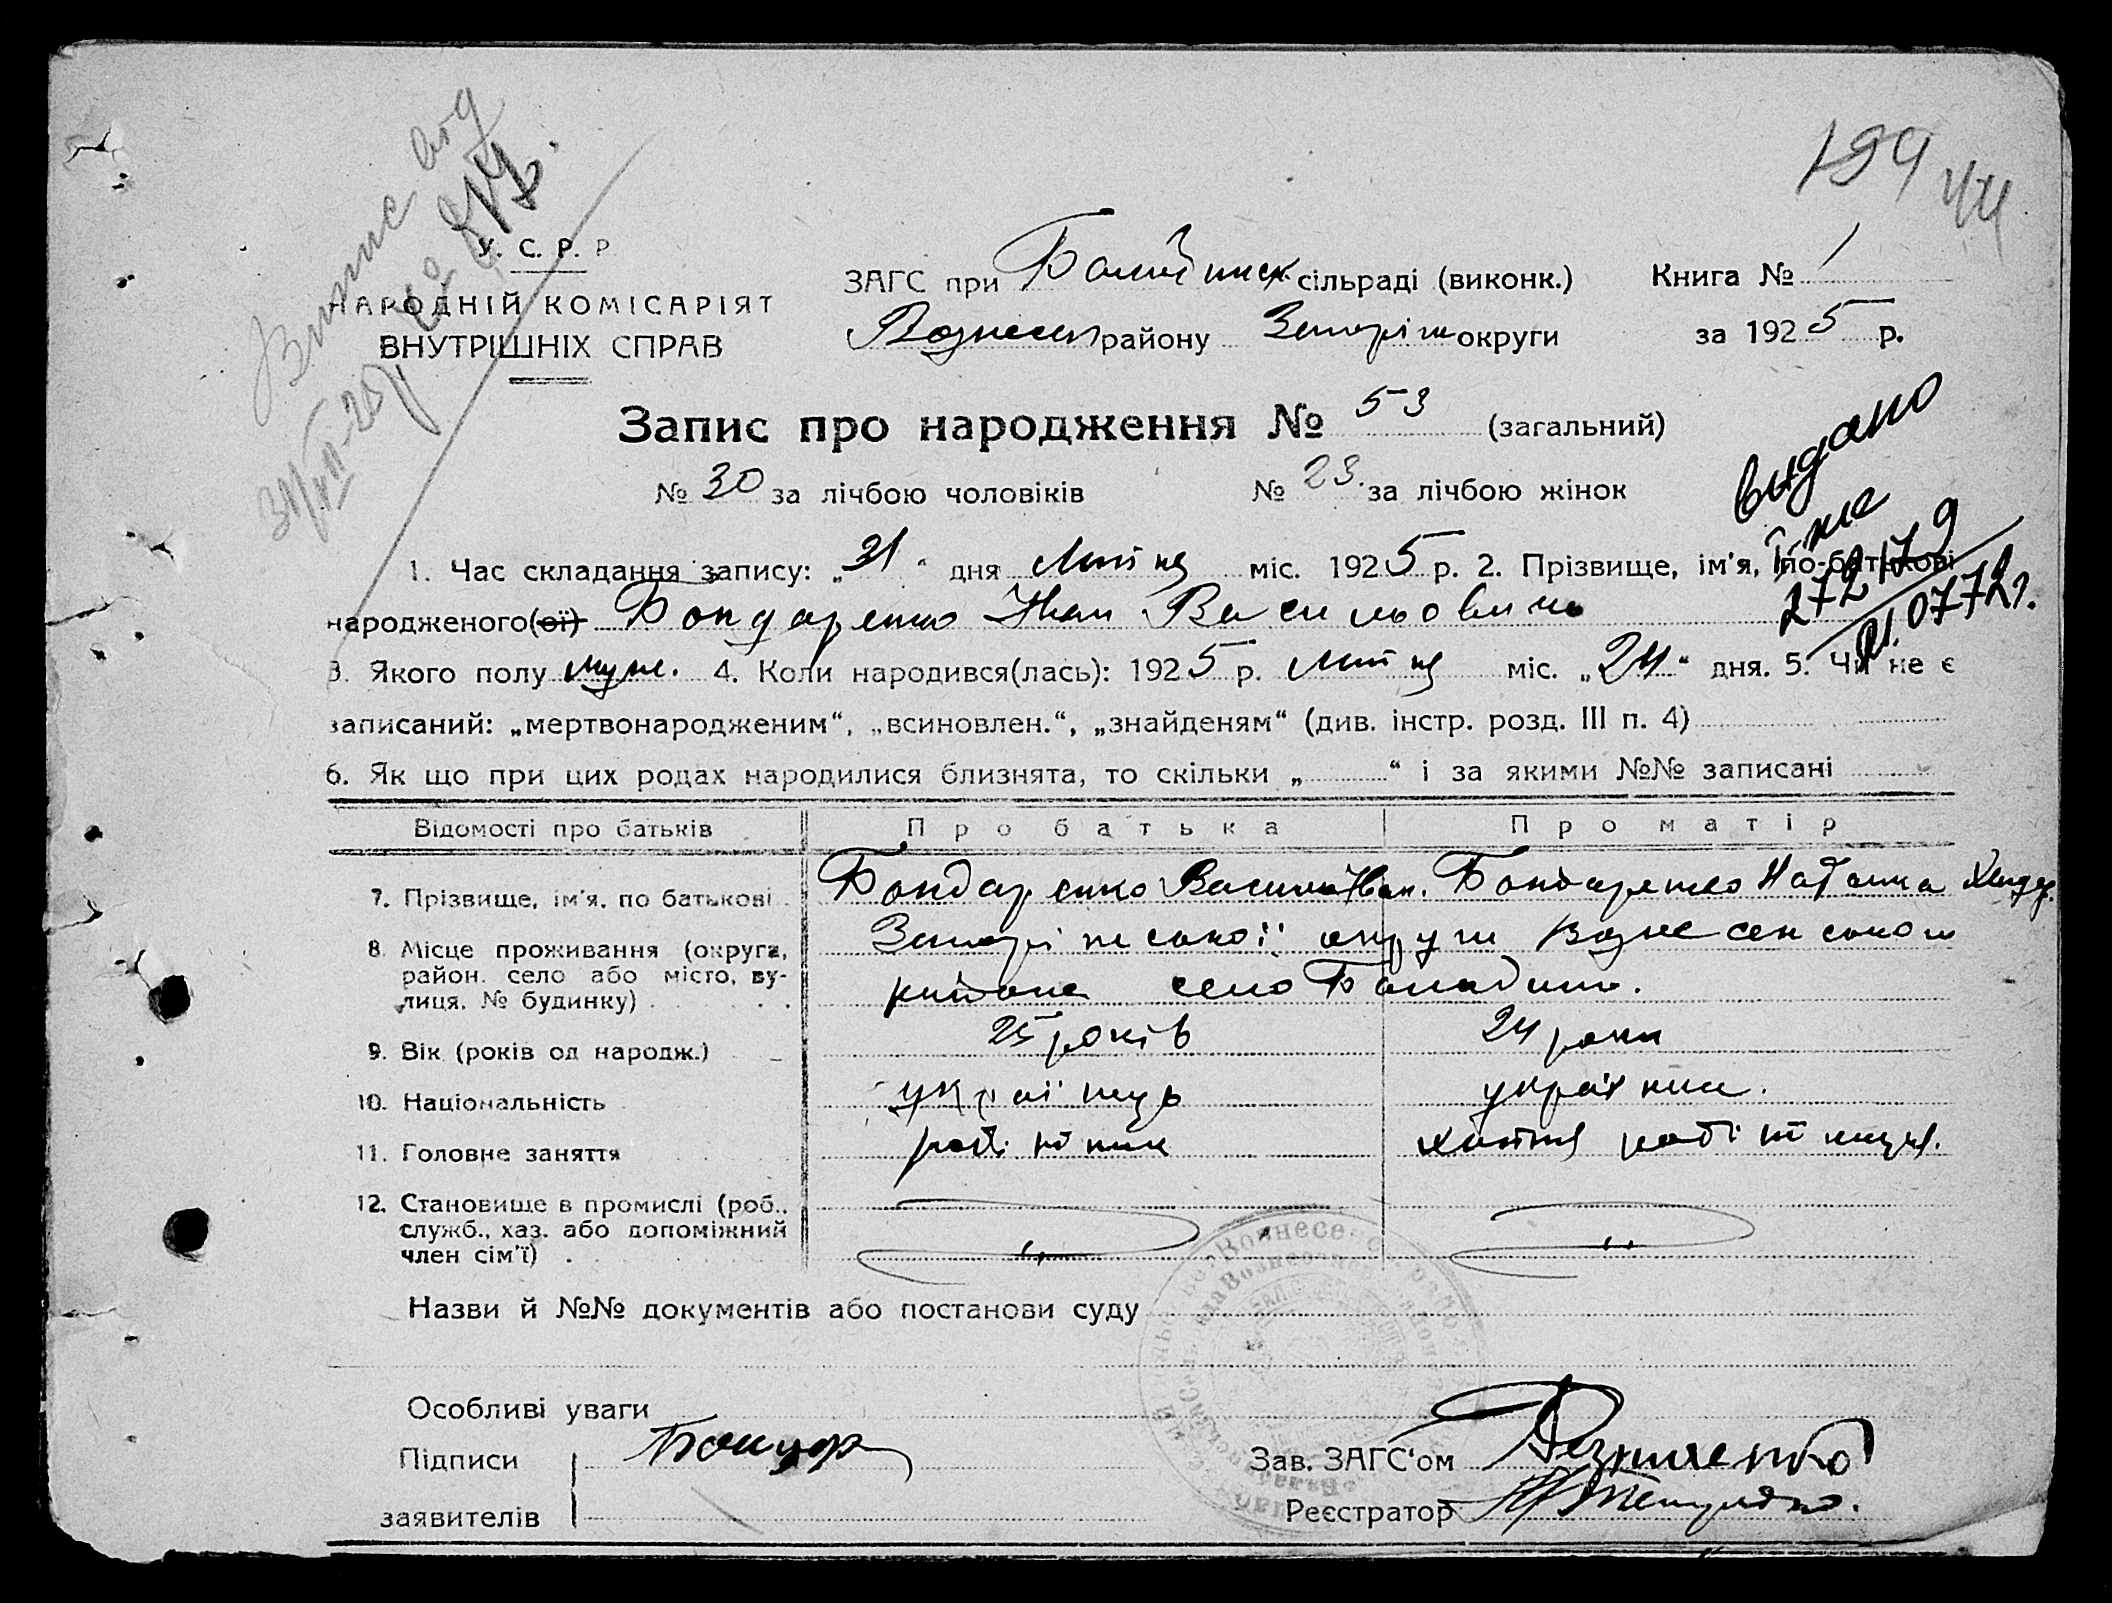 Випис від
199 44
У. С. Р. Р
НАРОДНІЙ КОМІСАРІЯТ
ВНУТРІШНІХ СПРАВ
ЗАГС при сільраді (виконк.) Книга № 1
Вознесен району Запоріж округи за 1925 р.
31/VII-25
Запис про народження № 53 (загальний)
№ 30 за лічбою чоловіків № 23. за лічбою жінок
выдано
272179
21.0772г.
1. Час складання запису: „31“ дня Липня міс. 1925 р. 2. Прізвище, ім'я, по-батькові
народженого(ої) Бондаренко Іван Васильович
3. Якого полу муж. 4. Коли народився(лась): 1925 р. Липня міс. „24“ дня. 5. Чи не є
записаний: „мертвонародженим“, „всиновлен.“, „знайденям“ (див. інстр. розд. III п. 4)
6. Як що при цих родах народилися близнята, то скільки „ “ і за якими №№ записані
Відомості про батьків Про батька Про матір
7. Прізвище, ім'я, по батькові Бондаренко Василь Іван. Бондаренко Наталка
8. Місце проживання (округа, Запоріжської округи Вознесенського
район, село або місто, ву- района село Балабино.
лиця, № будинку)
9. Вік (років од народж.) 25 років 24 роки
10. Національність українець українка.
11. Головне заняття робітник хатня робітниця.
12. Становище в промислі (роб.,
служб., хаз. або допоміжний
член сім'ї) „ „
Назви й №№ документів або постанови суду
Особливі уваги
Підписи Бондар Зав. ЗАГС'ом
заявителів Реєстратор